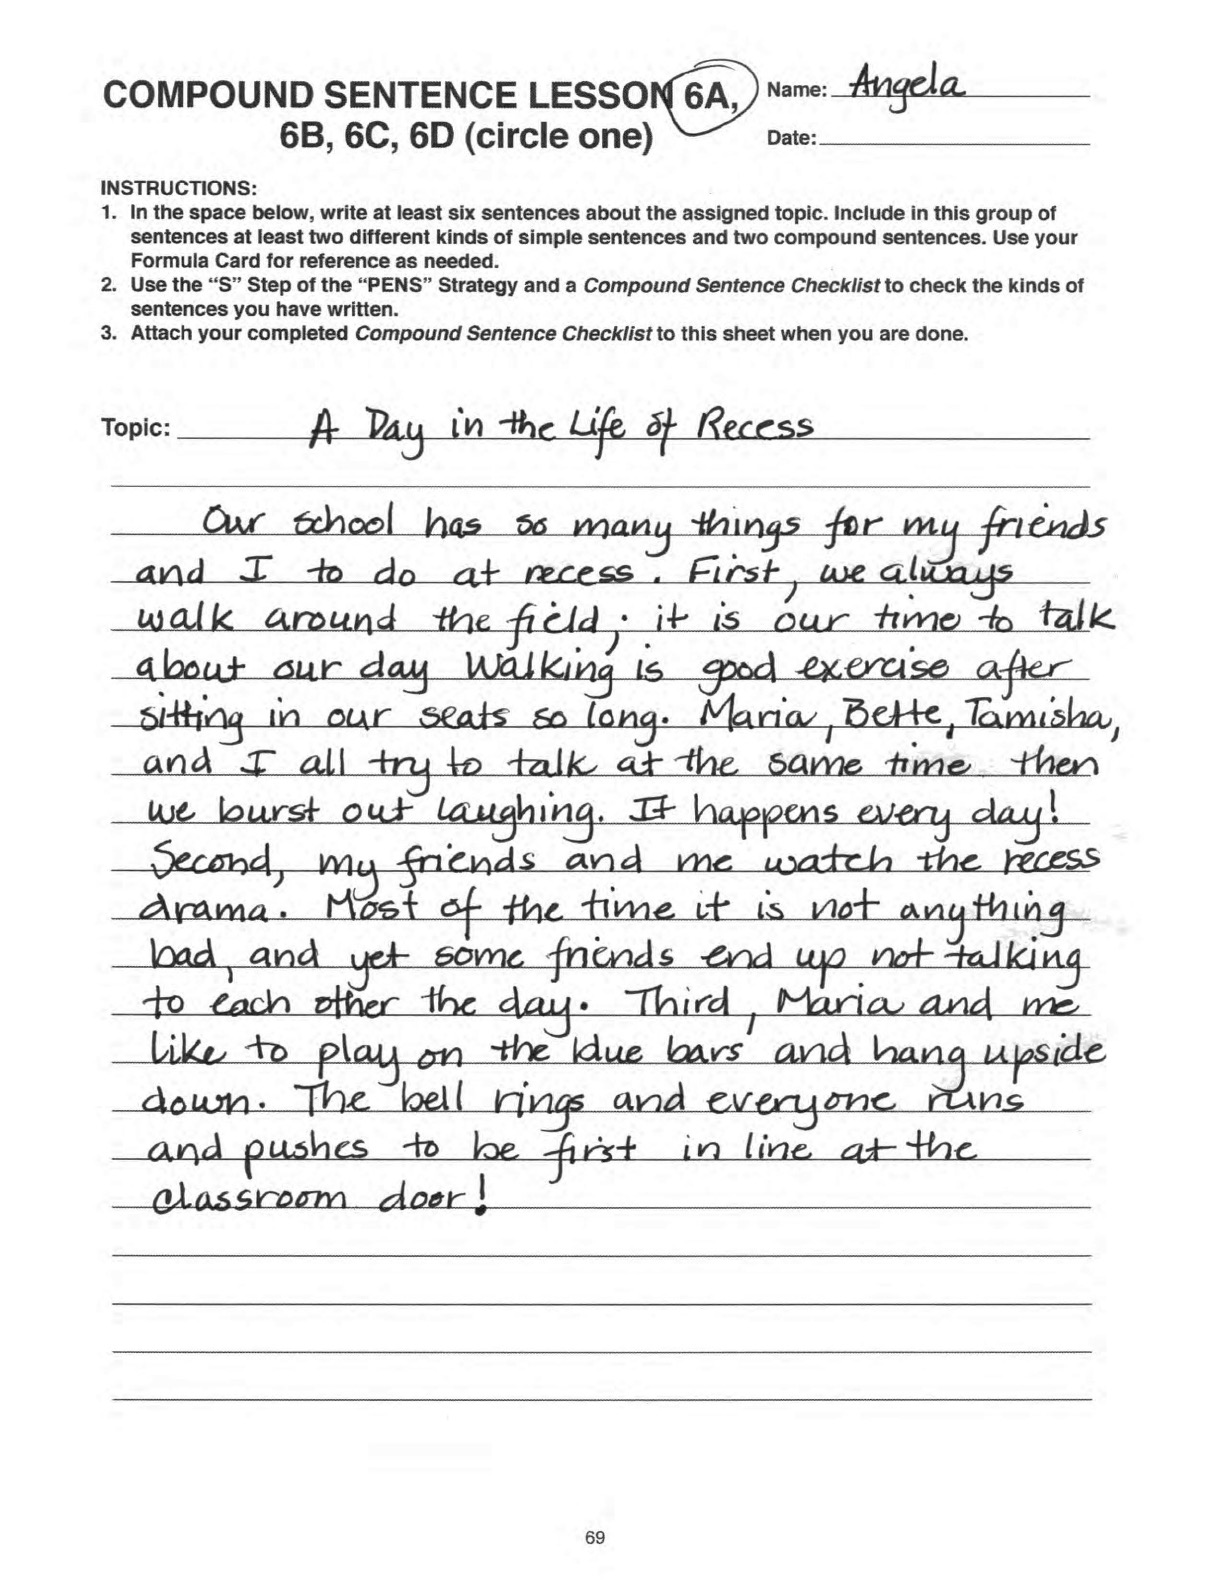 COMPOUND SENTENCE LESSON 6A,
6B, 6C, 6D (circle one)
Name: Angela
Date:
INSTRUCTIONS:
1. In the space below, write at least six sentences about the assigned topic. Include in this group of
sentences at least two different kinds of simple sentences and two compound sentences. Use your
Formula Card for reference as needed.
2. Use the “S” Step of the “PENS” Strategy and a Compound Sentence Checklist to check the kinds of
sentences you have written.
3. Attach your completed Compound Sentence Checklist to this sheet when you are done.
Topic: A Day in the Life of Recess
Our school has so many things for my friends
and I to do at recess. First, we always
walk around the field; it is our time to talk
about our day Walking is good exercise after
sitting in our seats so long. Maria, Bette, Tamisha,
and I all try to talk at the same time then
we burst out laughing. It happens every day!
Second, my friends and me watch the recess
drama. Most of the time it is not anything
bad, and yet some friends end up not talking
to each other the day. Third, Maria and me
like to play on the blue bars and hang upside
down. The bell rings and everyone runs
and pushes to be first in line at the
classroom door!
69